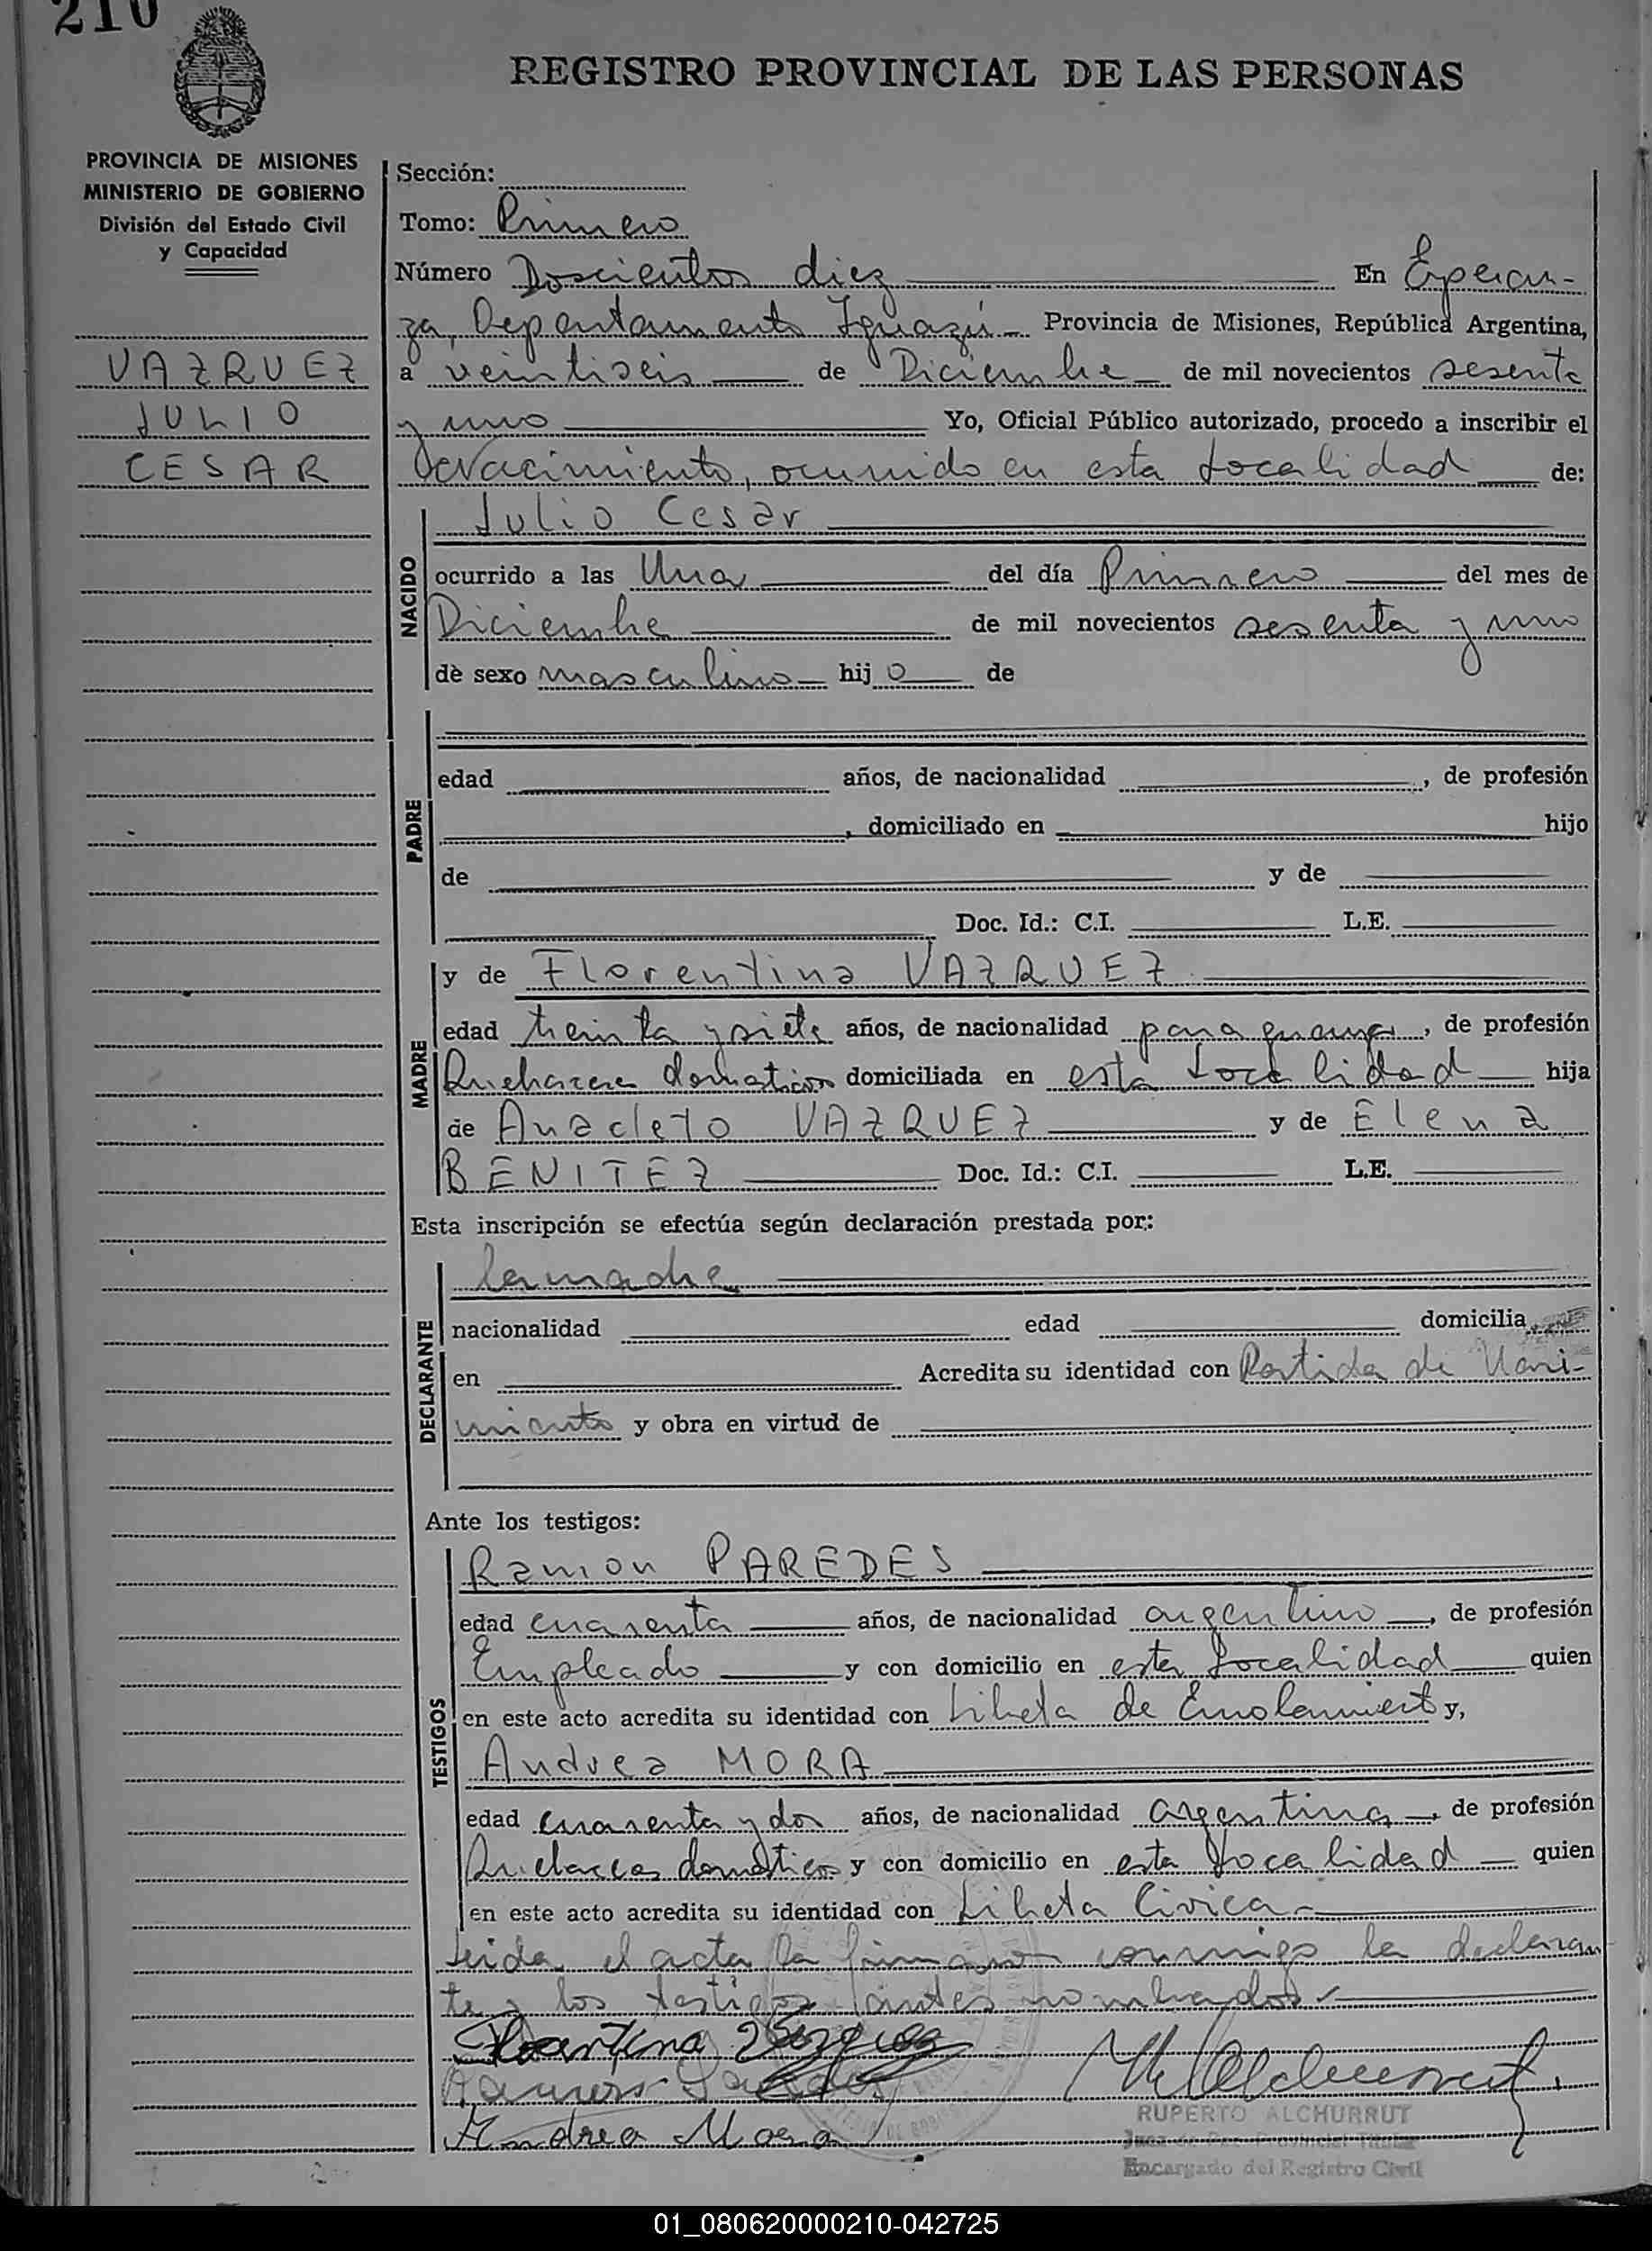 210
REGISTRO PROVINCIAL DE LAS PERSONAS
PROVINCIA DE MISIONES
MINISTERIO DE GOBIERNO
División del Estado Civil
y Capacidad
VAZQUEZ
JULIO
CESAR
Sección:
Tomo: Primero
Número Doscientos diez En Esperan-
za, Departamento Iguazú Provincia de Misiones, República Argentina,
a veintiseis de Diciembre de mil novecientos sesenta
y uno Yo, Oficial Público autorizado, procedo a inscribir el
de Nacimiento, ocurrido en esta Localidad de:
NACIDO
Julio Cesar
ocurrido a las Una del día Primero del mes de
Diciembre de mil novecientos sesenta y uno
de sexo masculino hijo de
PADRE
edad años, de nacionalidad , de profesión
, domiciliado en hijo
de y de
Doc. Id.: C.I. L.E.
MADRE
y de Florentina VAZQUEZ
edad treinta y siete años, de nacionalidad paraguaya, de profesión
Quehaceres domesticos domiciliada en esta Localidad hija
de Anacleto VAZQUEZ y de Elena
BENITEZ Doc. Id.: C.I. L.E.
Esta inscripción se efectúa según declaración prestada por:
DECLARANTE
la madre
nacionalidad edad domicilia
en Acredita su identidad con Partida de Naci-
miento y obra en virtud de
Ante los testigos:
TESTIGOS
Ramon PAREDES
edad cuarenta años, de nacionalidad argentino, de profesión
Empleado y con domicilio en esta Localidad quien
en este acto acredita su identidad con Libreta de Enrolamiento y,
Andrea MORA
edad cuarenta y dos años, de nacionalidad argentina, de profesión
Quehaceres domésticos y con domicilio en esta Localidad quien
en este acto acredita su identidad con Libreta Cívica
Leida el acta la firmaron conmigo la declaran
te y los testigos antes nombrados
Andrea Mora
RUPERTO ALCHURRUT
Juez de Paz Provincial Titular
Encargado del Registro Civil
01_080620000210-042725